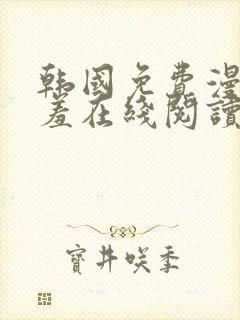 韩国免费漫
羞在线阅读
寶井咲季